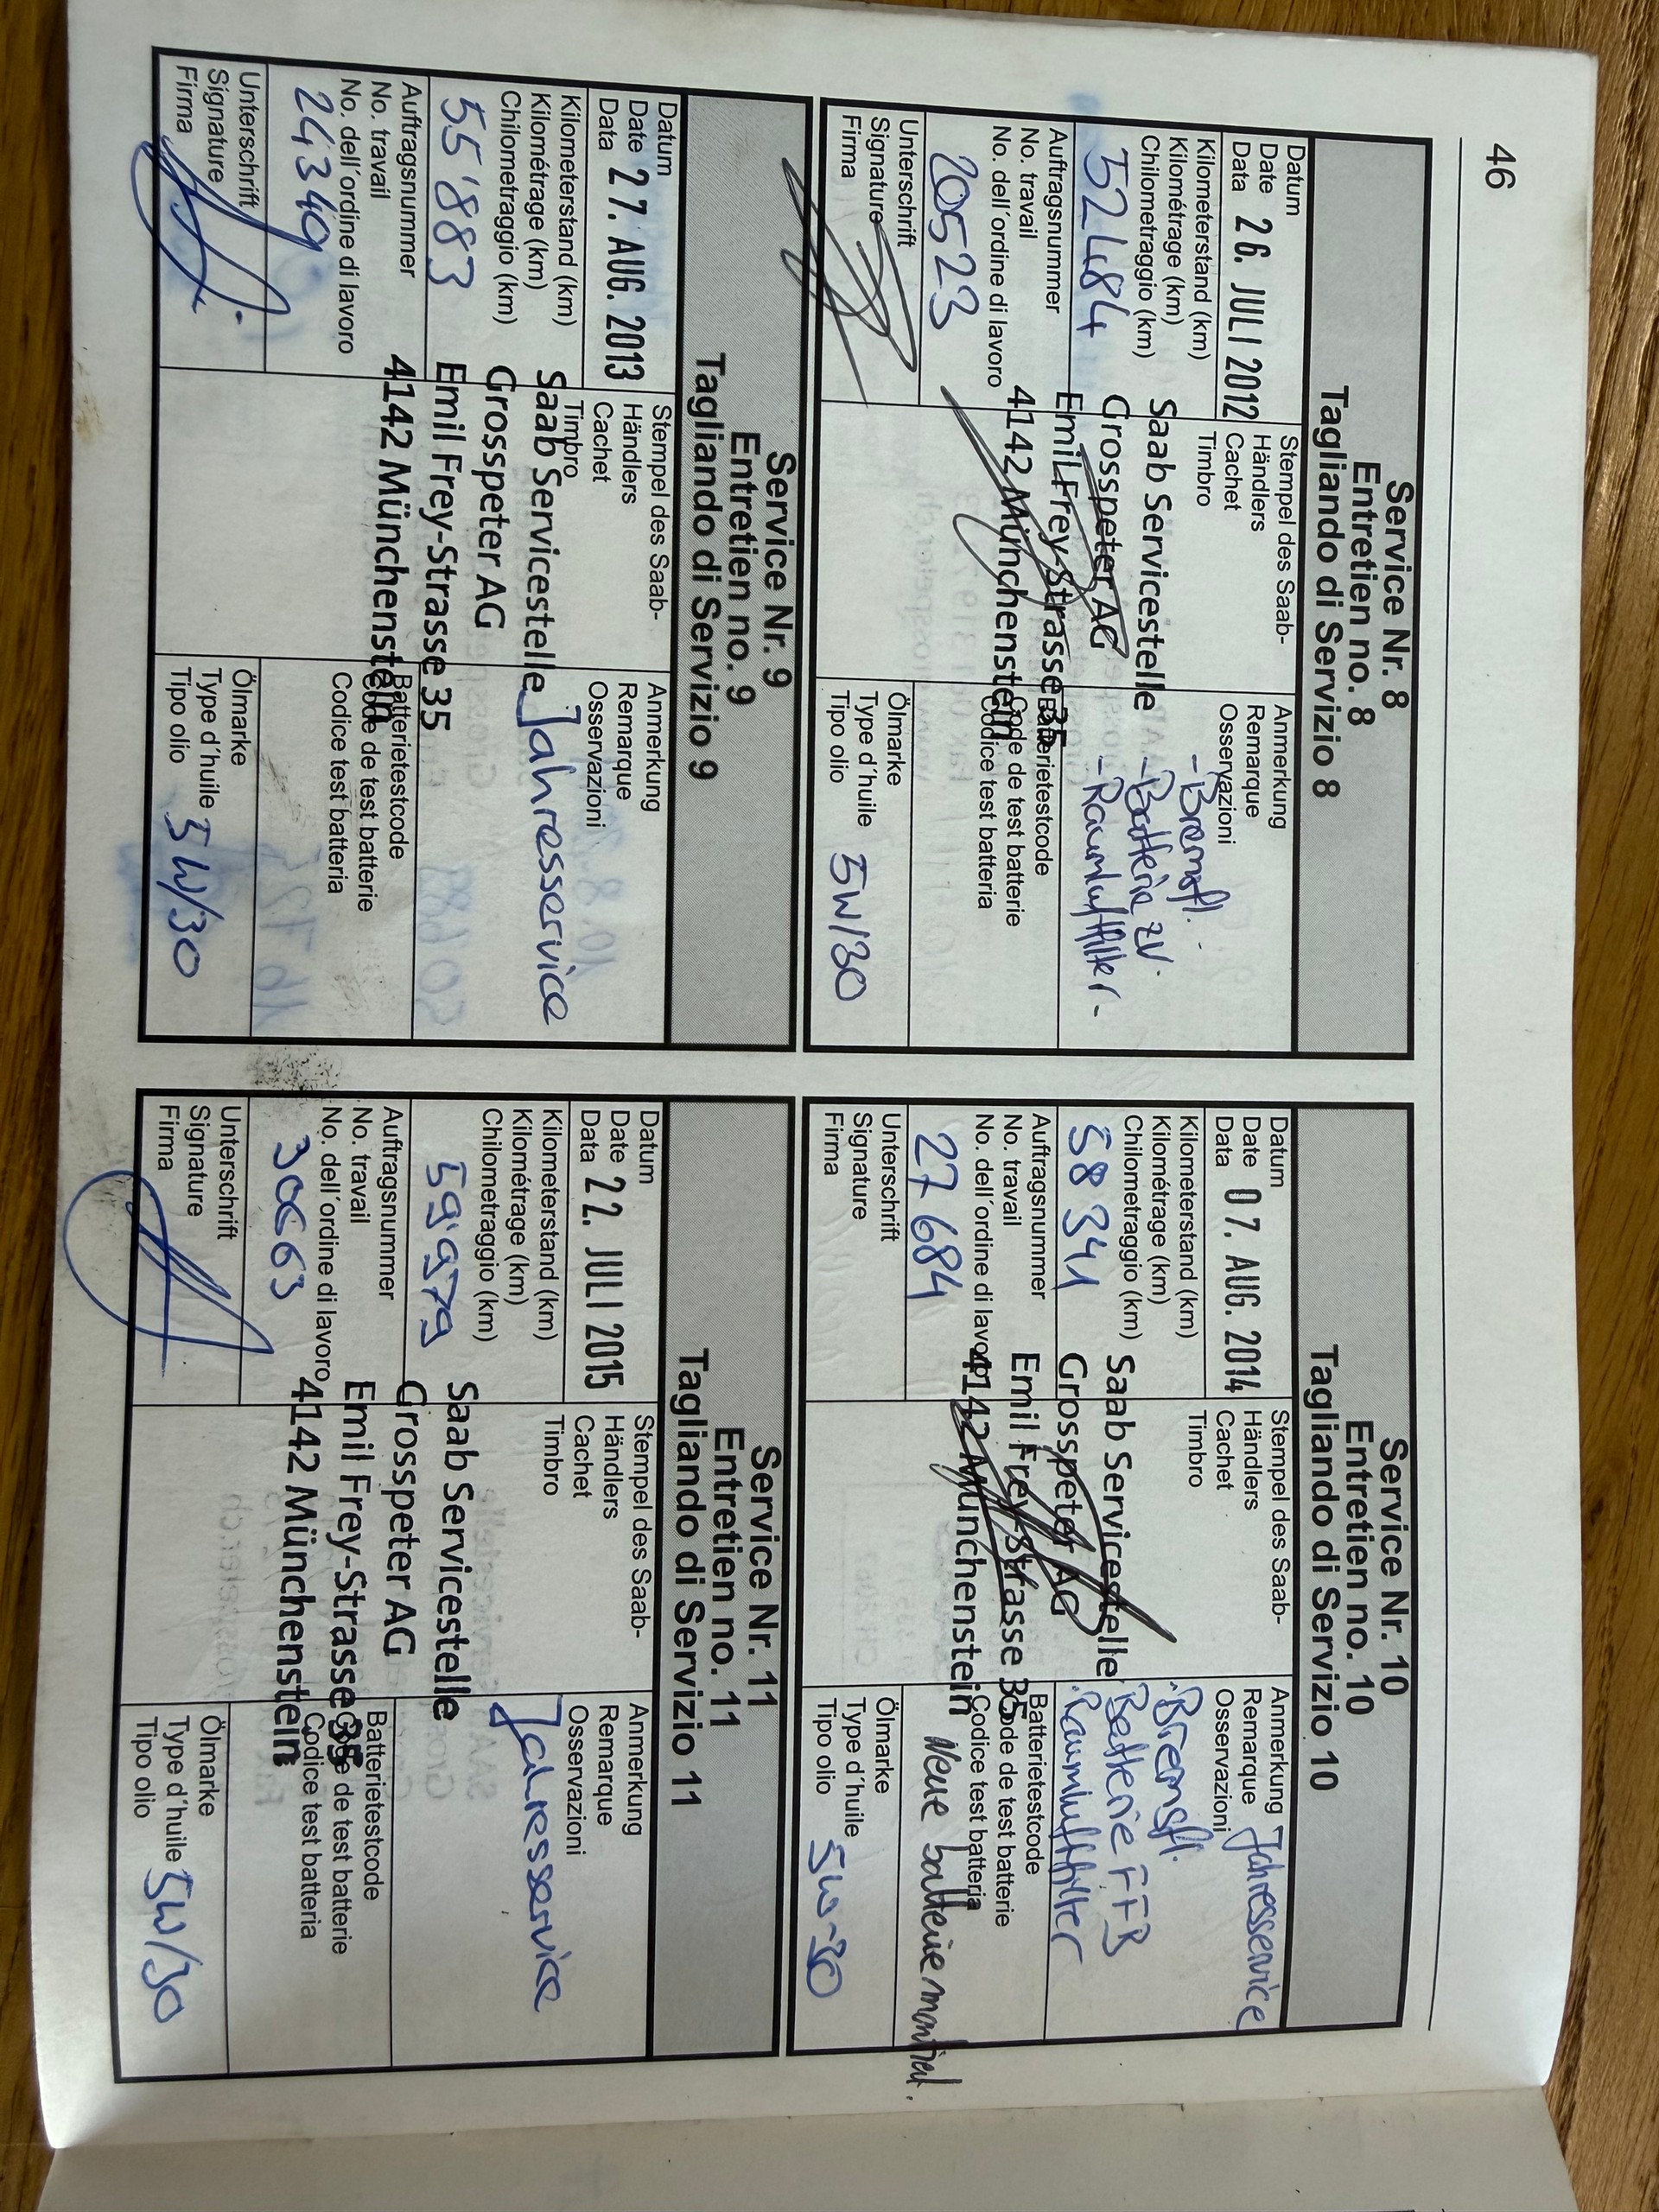 46
Service Nr. 8
Entretien no. 8
Tagliando di Servizio 8
Datum
Date
Data 26. JULI 2012
Kilometerstand (km)
Kilométrage (km)
Chilometraggio (km)
52484
Auftragsnummer
No. travail
No. dell'ordine di lavoro
20523
Unterschrift
Signature
Firma
Stempel des Saab-
Händlers
Cachet
Timbro
Saab Servicestelle
Grosspeter AG
Emil Frey-Strasse 35
4142 Münchenstein
Anmerkung
Remarque
Osservazioni
- Bremsfl.
- Batterie ZV.
- Raumluftfilter -
Batterietestcode
Code de test batterie
Codice test batteria
Ölmarke
Type d'huile
Tipo olio 5W/30
Service Nr. 9
Entretien no. 9
Tagliando di Servizio 9
Datum
Date
Data 27. AUG. 2013
Kilometerstand (km)
Kilométrage (km)
Chilometraggio (km)
55'883
Auftragsnummer
No. travail
No. dell'ordine di lavoro
24349
Unterschrift
Signature
Firma
Stempel des Saab-
Händlers
Cachet
Timbro
Saab Servicestelle
Grosspeter AG
Emil Frey-Strasse 35
4142 Münchenstein
Anmerkung
Remarque
Osservazioni
Jahresservice
Batterietestcode
Code de test batterie
Codice test batteria
Ölmarke
Type d'huile
Tipo olio 5W/30
Service Nr. 10
Entretien no. 10
Tagliando di Servizio 10
Datum
Date
Data 07. AUG. 2014
Kilometerstand (km)
Kilométrage (km)
Chilometraggio (km)
58341
Auftragsnummer
No. travail
No. dell'ordine di lavoro
27684
Unterschrift
Signature
Firma
Stempel des Saab-
Händlers
Cachet
Timbro
Saab Servicestelle
Grosspeter AG
Emil Frey-Strasse 35
4142 Münchenstein
Anmerkung
Remarque Jahresservice
Osservazioni
. Bremsfl.
. Batterie FFB
. Raumluftfilter
Batterietestcode
Code de test batterie
Codice test batteria
Neue batterie montiert.
Ölmarke
Type d'huile
Tipo olio 5W-30
Service Nr. 11
Entretien no. 11
Tagliando di Servizio 11
Datum
Date
Data 22. JULI 2015
Kilometerstand (km)
Kilométrage (km)
Chilometraggio (km)
59'979
Auftragsnummer
No. travail
No. dell'ordine di lavoro
30663
Unterschrift
Signature
Firma
Stempel des Saab-
Händlers
Cachet
Timbro
Saab Servicestelle
Grosspeter AG
Emil Frey-Strasse 35
4142 Münchenstein
Anmerkung
Remarque
Osservazioni
Jahresservice
Batterietestcode
Code de test batterie
Codice test batteria
Ölmarke
Type d'huile
Tipo olio 5W/30